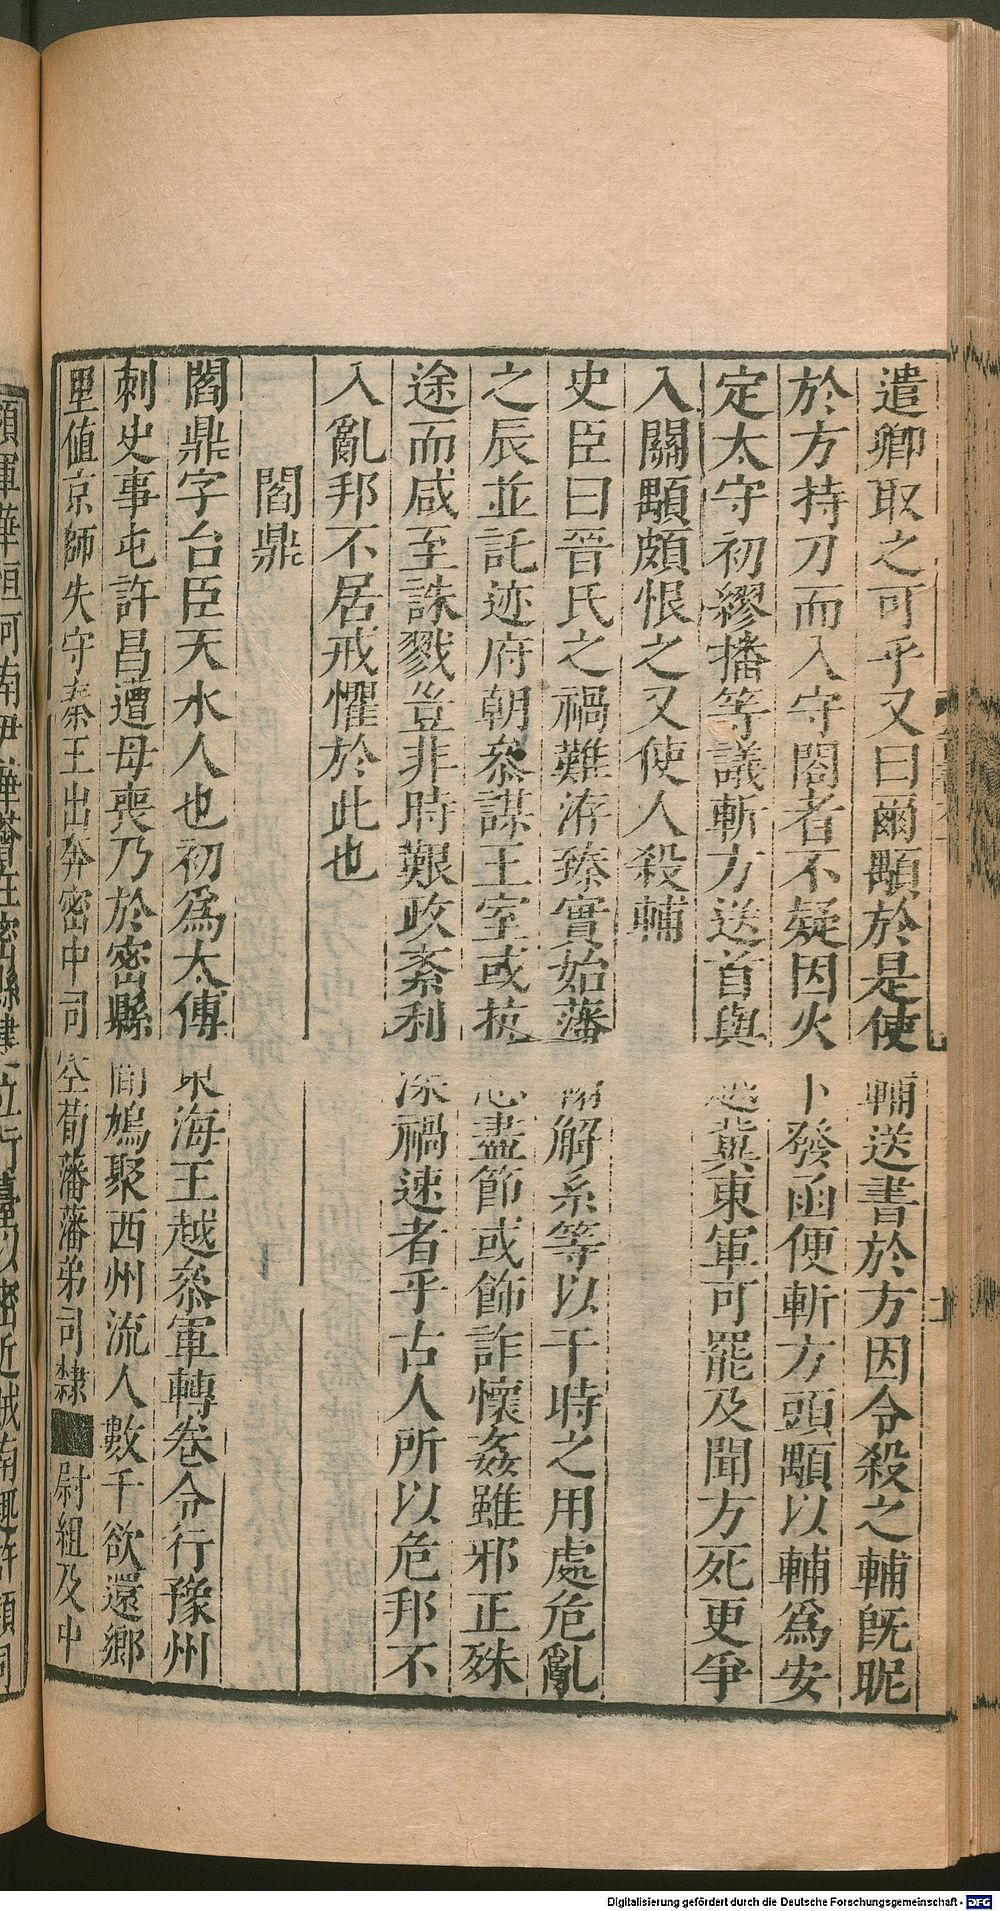 遣卿取之可乎又曰爾顒於是使輔送書於方因令殺之輔旣昵
於方持刀而入守閤者不疑因火下發函便斬方頭顒以輔爲安
定太守初繆播等議斬方送首與越冀東軍可罷及聞方死更爭
入關顒頗恨之又使人殺輔
史臣曰晉氏之禍難洊臻實始藩翰解系等以干時之用處危亂
之辰並託迹府朝叅謀王室或抗忠盡節或飾詐懷姦雖邪正殊
途而咸至誅戮豈非時艱政紊利深禍速者乎古人所以危邦不
入亂邦不居戒懼於此也
閻鼎
閻鼎字台臣天水人也初爲太傅東海王越叅軍轉卷令行豫州
刺史事屯許昌遭母喪乃於密縣間鳩聚西州流人數千欲還鄉
里值京師失守秦王出奔密中司空荀藩藩弟司隸尉組及中
Digitalisierung gefördert durch die Deutsche Forschungsgemeinschaft - DFG